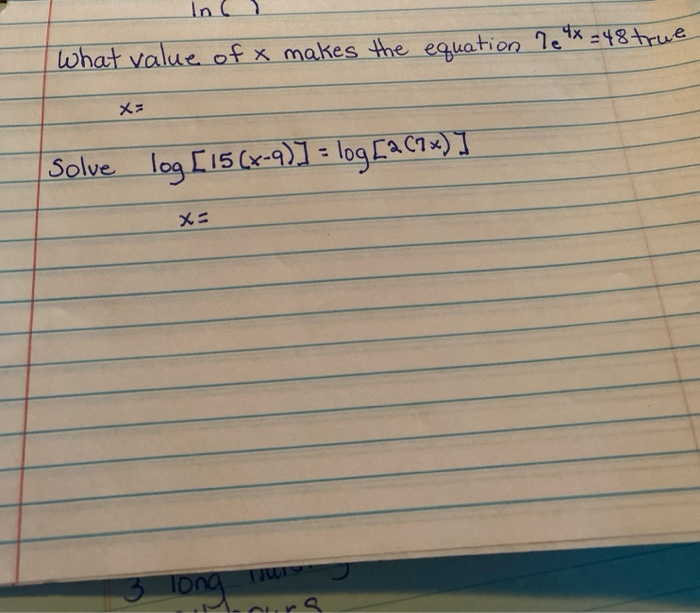 ln ( )
What value of x makes the equation 7e^4x = 48 true
x=
Solve log [15(x-9)] = log [2(7x)]
x=
3 long